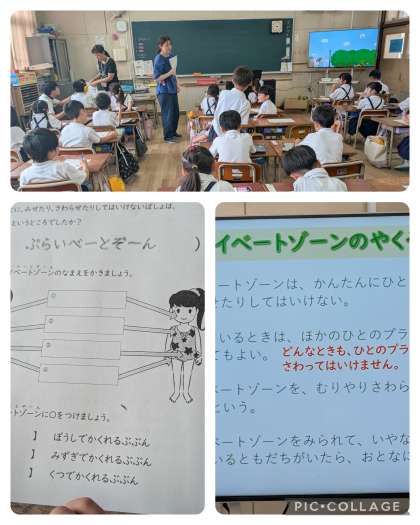 に、みせたり、さわらせたりしてはいけないばしょは、
というところでしたか?
ぷらいべーとぞ〜ん )
イベートゾーンのなまえをかきましょう。
ートゾーンに○をつけましょう。
】 ぼうしでかくれるぶぶん
】 みずぎでかくれるぶぶん
】 くつでかくれるぶぶん
イベートゾーンのやく
ートゾーンは、かんたんにひと
たりしてはいけない。
いるときは、ほかのひとのプラ
てもよい。 どんなときも、ひとのプラ
さわってはいけません。
ベートゾーンを、むりやりさわら
という。
ベートゾーンをみられて、いやな
いるともだちがいたら、おとなに
PIC•COLLAGE